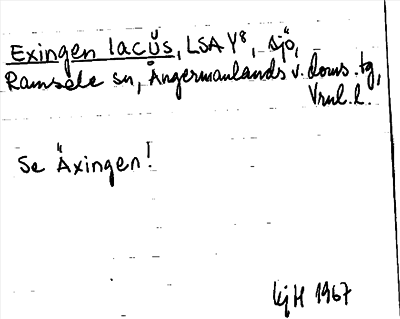 Exingen lacŭs, LSA Y⁸, sjö,
Ramsele sn, Ångermanlands v. doms. tg,
Vrnl. l.
Se Äxingen!
KjH 1967